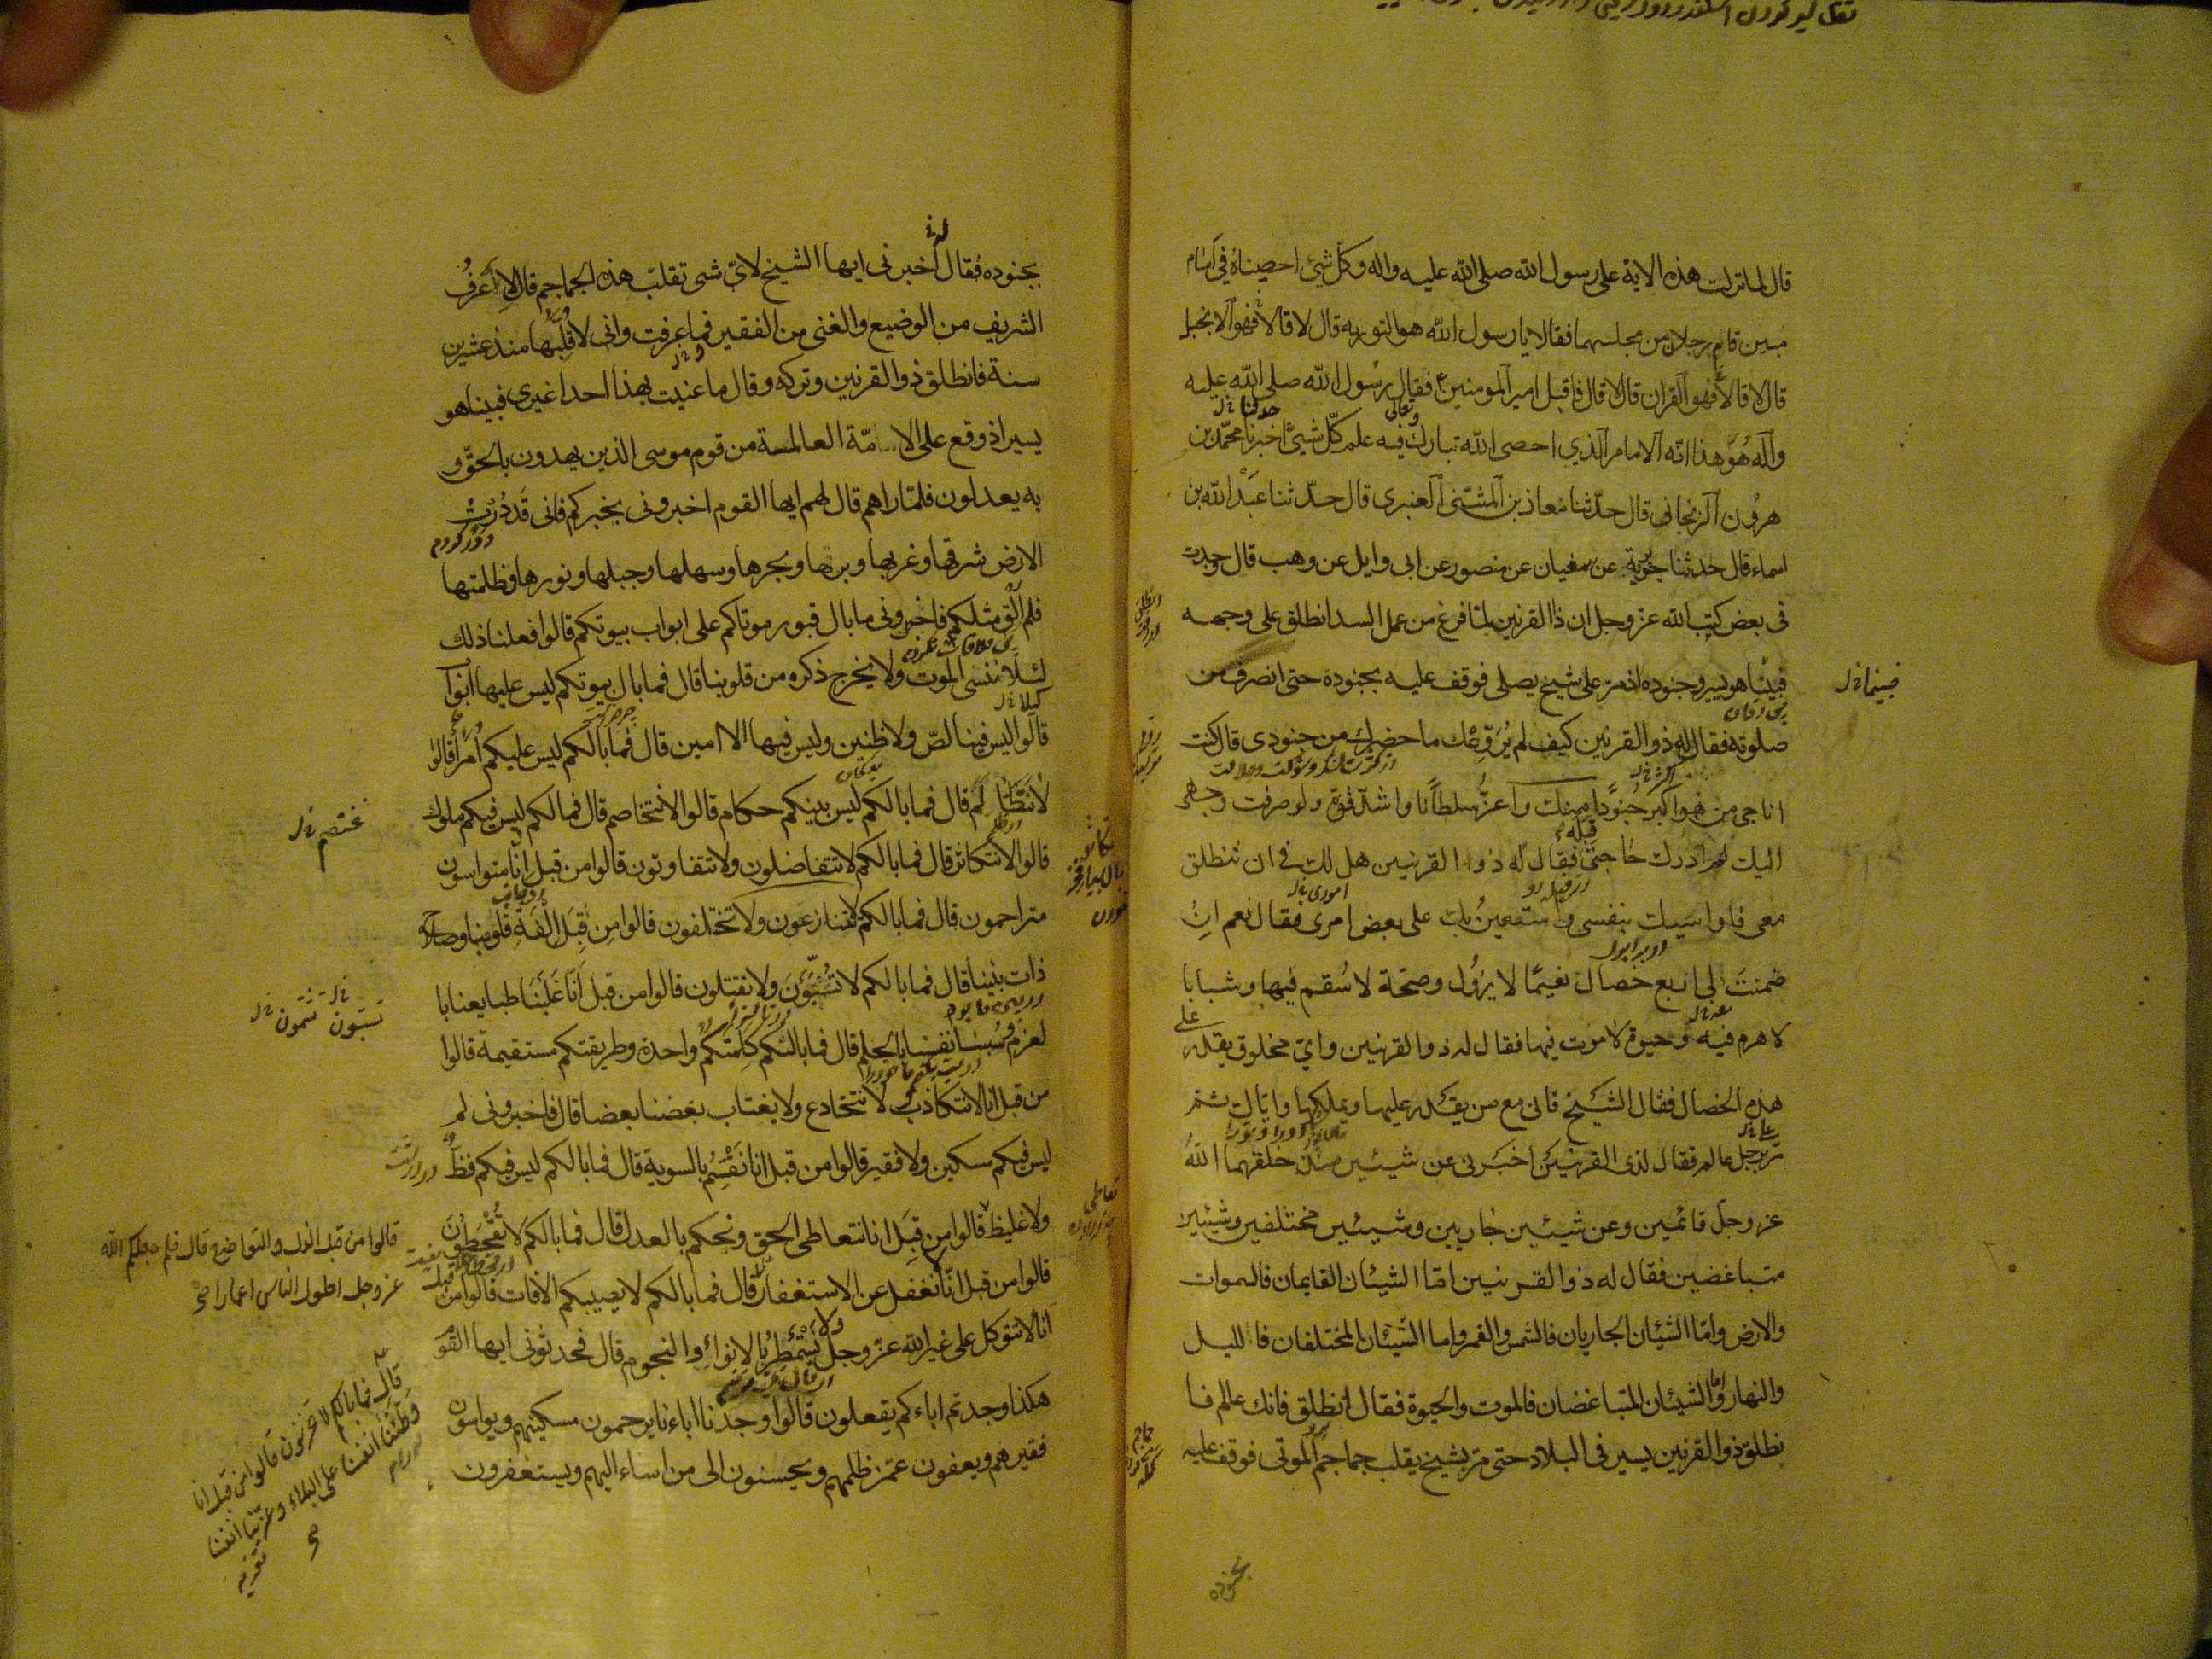 قال لما نزلت هذه الاية على رسول الله صلى الله عليه واله وكل شئ احصيناه في امام
مبين قام رجلان من مجلسهما فقالا يا رسول الله هو التورية قال لا قالا فهو الانجيل
قال لا قالا فهو القران قال لا قال فاقبل امير المومنين فقال رسول الله صلى الله عليه
واله هو هذا انه الامام الذي احصى الله تبارك وتعالى فيه علم كل شئ اخبرنا محمد بن
هرون الزنجاني قال حدثنا معاذ بن المثنى العنبرى قال حدثنا عبد الله بن
اسماء قال حدثنا جويرية عن سفيان عن منصور عن ابى وايل عن وهب قال وجدت
فى بعض كتب الله عز وجل ان ذا القرنين لما فرغ من عمل السد انطلق على وجهه
فبينا هو يسير وجنوده اذ مر على شيخ يصلى فوقف عليه بجنوده حتى انصرف من
فبينما خ ل
صلوته فقال له ذو القرنين كيف لم يروعك ما حضرك من جنودى قال كنت
اناجى من هو اكبر جنودا منك واعز سلطانا واشد قوة ولو صرفت وجهى
اليك لم ادرك حاجتى قبله فقال له ذو القرنين هل لك فى ان تنطلق
معى فاواسيك بنفسى واستعين بك على بعض امرى فقال نعم ان
ضمنت لى اربع خصال نعيما لا يزول وصحة لا سقم فيها وشبابا
لا هرم فيه وحيوة لا موت فيها فقال له ذو القرنين واي مخلوق يقدر على
هذه الخصال فقال الشيخ فانى مع من يقدر عليها ويملكها واياك ثم
مر برجل عالم فقال لذى القرنين اخبرنى عن شيئين منذ خلقهما الله
عز وجل قائمين وعن شيئين جاريين وشيئين مختلفين وشيئين
متباغضين فقال له ذو القرنين اما الشيئان القايمان فالسموات
والارض واما الشيئان الجاريان فالشمس والقمر واما الشيئان المختلفان فالليل
والنهار واما الشيئان المتباغضان فالموت والحيوة فقال انطلق فانك عالم فا
نطلق ذو القرنين يسير فى البلاد حتى مر بشيخ يقلب جماجم الموتى فوقف عليه
بجنوده
بجنوده فقال له اخبرنى ايها الشيخ لاى شى تقلب هذه الجماجم قال لاعرف
الشريف من الوضيع والغنى من الفقير فما عرفت وانى لاقلبها منذ عشرين
سنة فانطلق ذو القرنين وتركه وقال ما عنيت بهذا احدا غيرى فبينا هو
يسير اذ وقع على الامة العالمة من قوم موسى الذين يهدون بالحق و
به يعدلون فلما راهم قال لهم ايها القوم اخبرونى بخبركم فانى قد درت
الارض شرقها وغربها وبرها وبحرها وسهلها وجبلها ونورها وظلمتها
فلم الق مثلكم فاخبرونى ما بال قبور موتاكم على ابواب بيوتكم قالوا فعلنا ذلك
لئلا ننسى الموت ولا يخرج ذكره من قلوبنا قال فما بال بيوتكم ليس عليها ابواب
قالوا ليس فينا لص ولا ظنين وليس فيها الا امين قال فما بالكم ليس عليكم امراء قالوا
لا نتظالم قال فما بالكم ليس بينكم حكام قالوا لا نتخاصم قال فما لكم ليس فيكم ملوك
نختصم خ ل
قالوا لا نتكاثر قال فما بالكم لا تتفاضلون ولا تتفاوتون قالوا من قبل انا متواسون
متراحمون قال فما بالكم لا تتنازعون ولا تختلفون قالوا من قبل الفة قلوبنا وصلاح
ذات بيننا قال فما بالكم لا تسبون ولا تقتلون قالوا من قبل انا غلبنا طبايعنا با
لعزم وسسنا انفسنا بالحلم قال فما بالكم كلمتكم واحدة وطريقتكم مستقيمة قالوا
من قبل انا لا نتكاذب لا نتخادع ولا يغتاب بعضنا بعضا قال فاخبرونى لم
ليس فيكم مسكين ولا فقير قالوا من قبل انا نقسم بالسوية قال فما بالكم ليس فيكم فظ
ولا غليظ قالوا من قبل انا نتعاطى الحق ونحكم بالعدل قال فما بالكم لا تقحطون
قالوا من قبل الذل والتواضع قال فلم جعلكم الله
عز وجل اطول الناس اعمارا صح
قالوا من قبل انا لا نغفل عن الاستغفار قال فما بالكم لا يصيبكم الافات قالوا من قبل
انا لا نتوكل على غير الله عز وجل ولا نستمطر بالانواء والنجوم قال فحدثونى ايها القوم
هكذا وجدتم اباءكم يفعلون قالوا وجدنا اباءنا يرحمون مسكينهم ويواسون
فقيرهم ويعفون عمن ظلمهم ويحسنون الى من اساء اليهم ويستغفرون
قال فما بالكم لا تحزنون قالوا من قبل انا
وطنا انفسنا على البلاء وعزينا انفسنا
صح